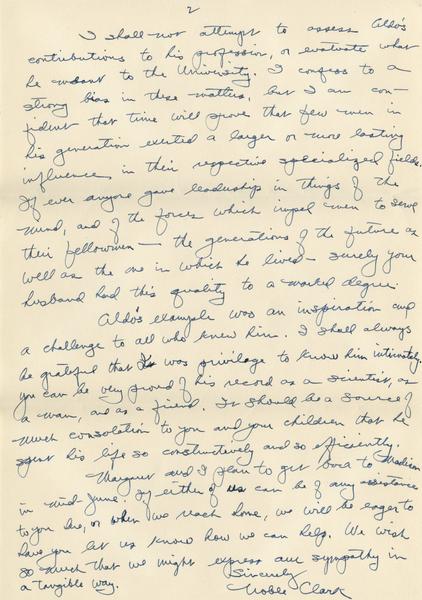 2
I shall not attempt to assess Aldo's
contributions to his profession, or evaluate what
he meant to the University. I confess to a
strong bias in these matters, but I am con-
fident that time will prove that few men in
his generation exerted a larger or more lasting
influence in their respective specialized fields.
If ever anyone gave leadership in things of the
mind, and of the forces which impel men to serve
their fellowmen — the generations of the future as
well as the one in which he lived — surely your
husband had this quality to a marked degree.
Aldo's example was an inspiration and
a challenge to all who knew him. I shall always
be grateful that I was privilege to know him intimately.
You can be very proud of his record as a scientist, as
a man, and as a friend. It should be a source of
much consolation to you and your children that he
spent his life so constructively and so efficiently.
Margaret and I plan to get back to Madison
in mid June. If either of us can be of any assistance
to you here, or when we reach home, we will be eager to
have you let us know how we can help. We wish
so much that we might express our sympathy in
a tangible way.
Sincerely
Noble Clark